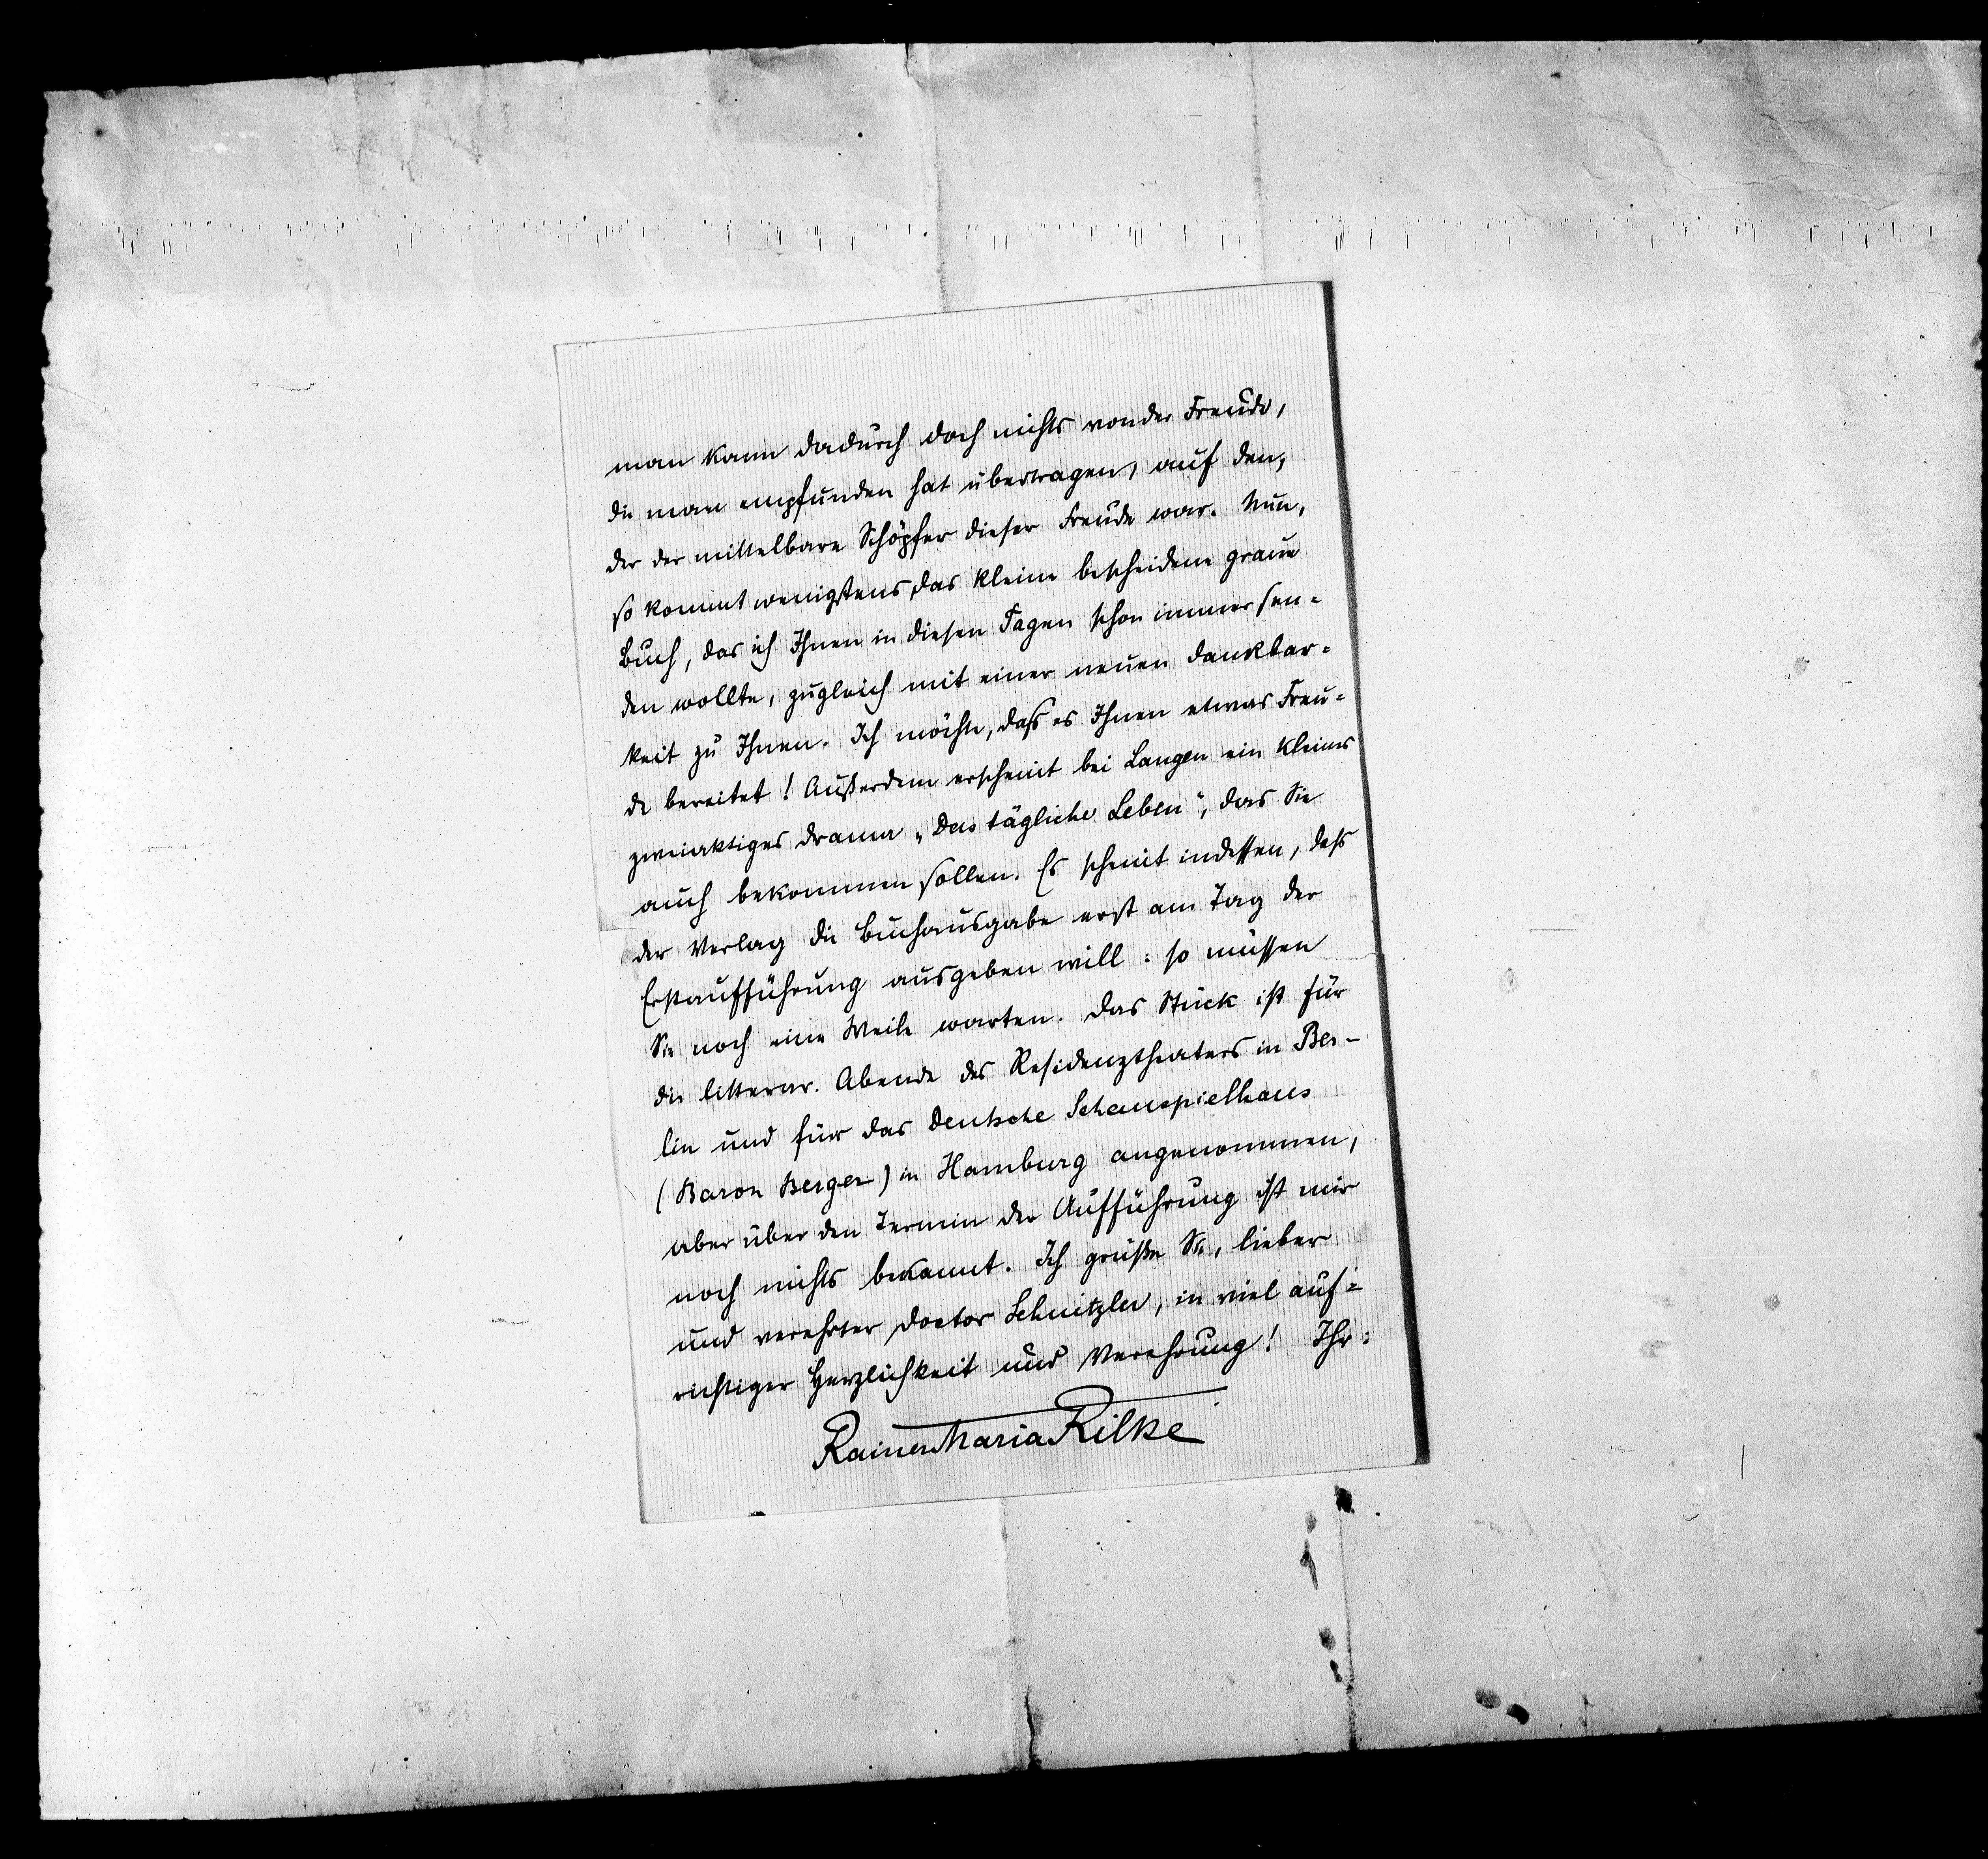 man kann dadurch doch nichts von der Freude,
die man empfunden hat übertragen, auf den,
der der mittelbare Schöpfer dieser Freude war. Nun,
so kommt wenigstens das kleine bescheidene graue
Buch, das ich Ihnen in diesen Tagen schon immer sen=
den wollte, zugleich mit einer neuen Dankbar=
keit zu Ihnen. Ich möchte, dass es Ihnen etwas Freu=
de bereitet! Außerdem erscheint bei Langen ein kleines
zweiaktiges Drama „Das tägliche Leben“, das Sie
auch bekommen sollen. Es scheint indessen, dass
der Verlag die Buchausgabe erst am Tag der
Erstaufführung ausgeben will: so müssen
Sie noch eine Weile warten. Das Stück ist für
die litterar. Abende des Residenztheaters in Ber-
lin und für das Deutsche Schauspielhaus
(Baron Berger) in Hamburg angenommen,
aber über den Termin der Aufführung ist mir
noch nichts bekannt. Ich grüße Sie, lieber
und verehrter Doctor Schnitzler, in viel auf=
richtiger Herzlichkeit und Verehrung! Ihr:
Rainer Maria Rilke